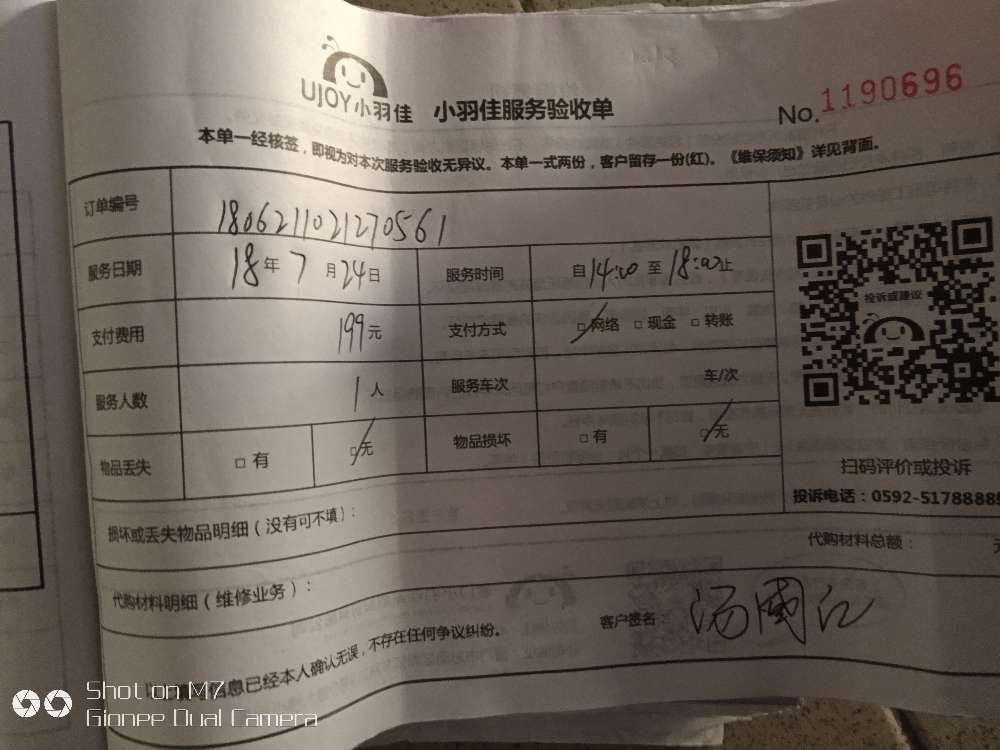 UJOY小羽佳 小羽佳服务验收单 No.1190696
本单一经核签，即视为对本次服务验收无异议。本单一式两份，客户留存一份(红)。《维保须知》详见背面。
订单编号 180621102127056​1
服务日期 18年7月24日 服务时间 自14:00至18:00止
支付费用 199元 支付方式 □网络 □现金 □转账
服务人数 1人 服务车次 车/次
物品丢失 □有 □无 物品损坏 □有 □无
投诉或建议
扫码评价或投诉
投诉电话：0592-5178888
损坏或丢失物品明细（没有可不填）：
代购材料明细（维修业务）： 代购材料总额：
信息已经本人确认无误，不存在任何争议纠纷。 客户签名：汤国江
Shot on M7
Gionee Dual Camera